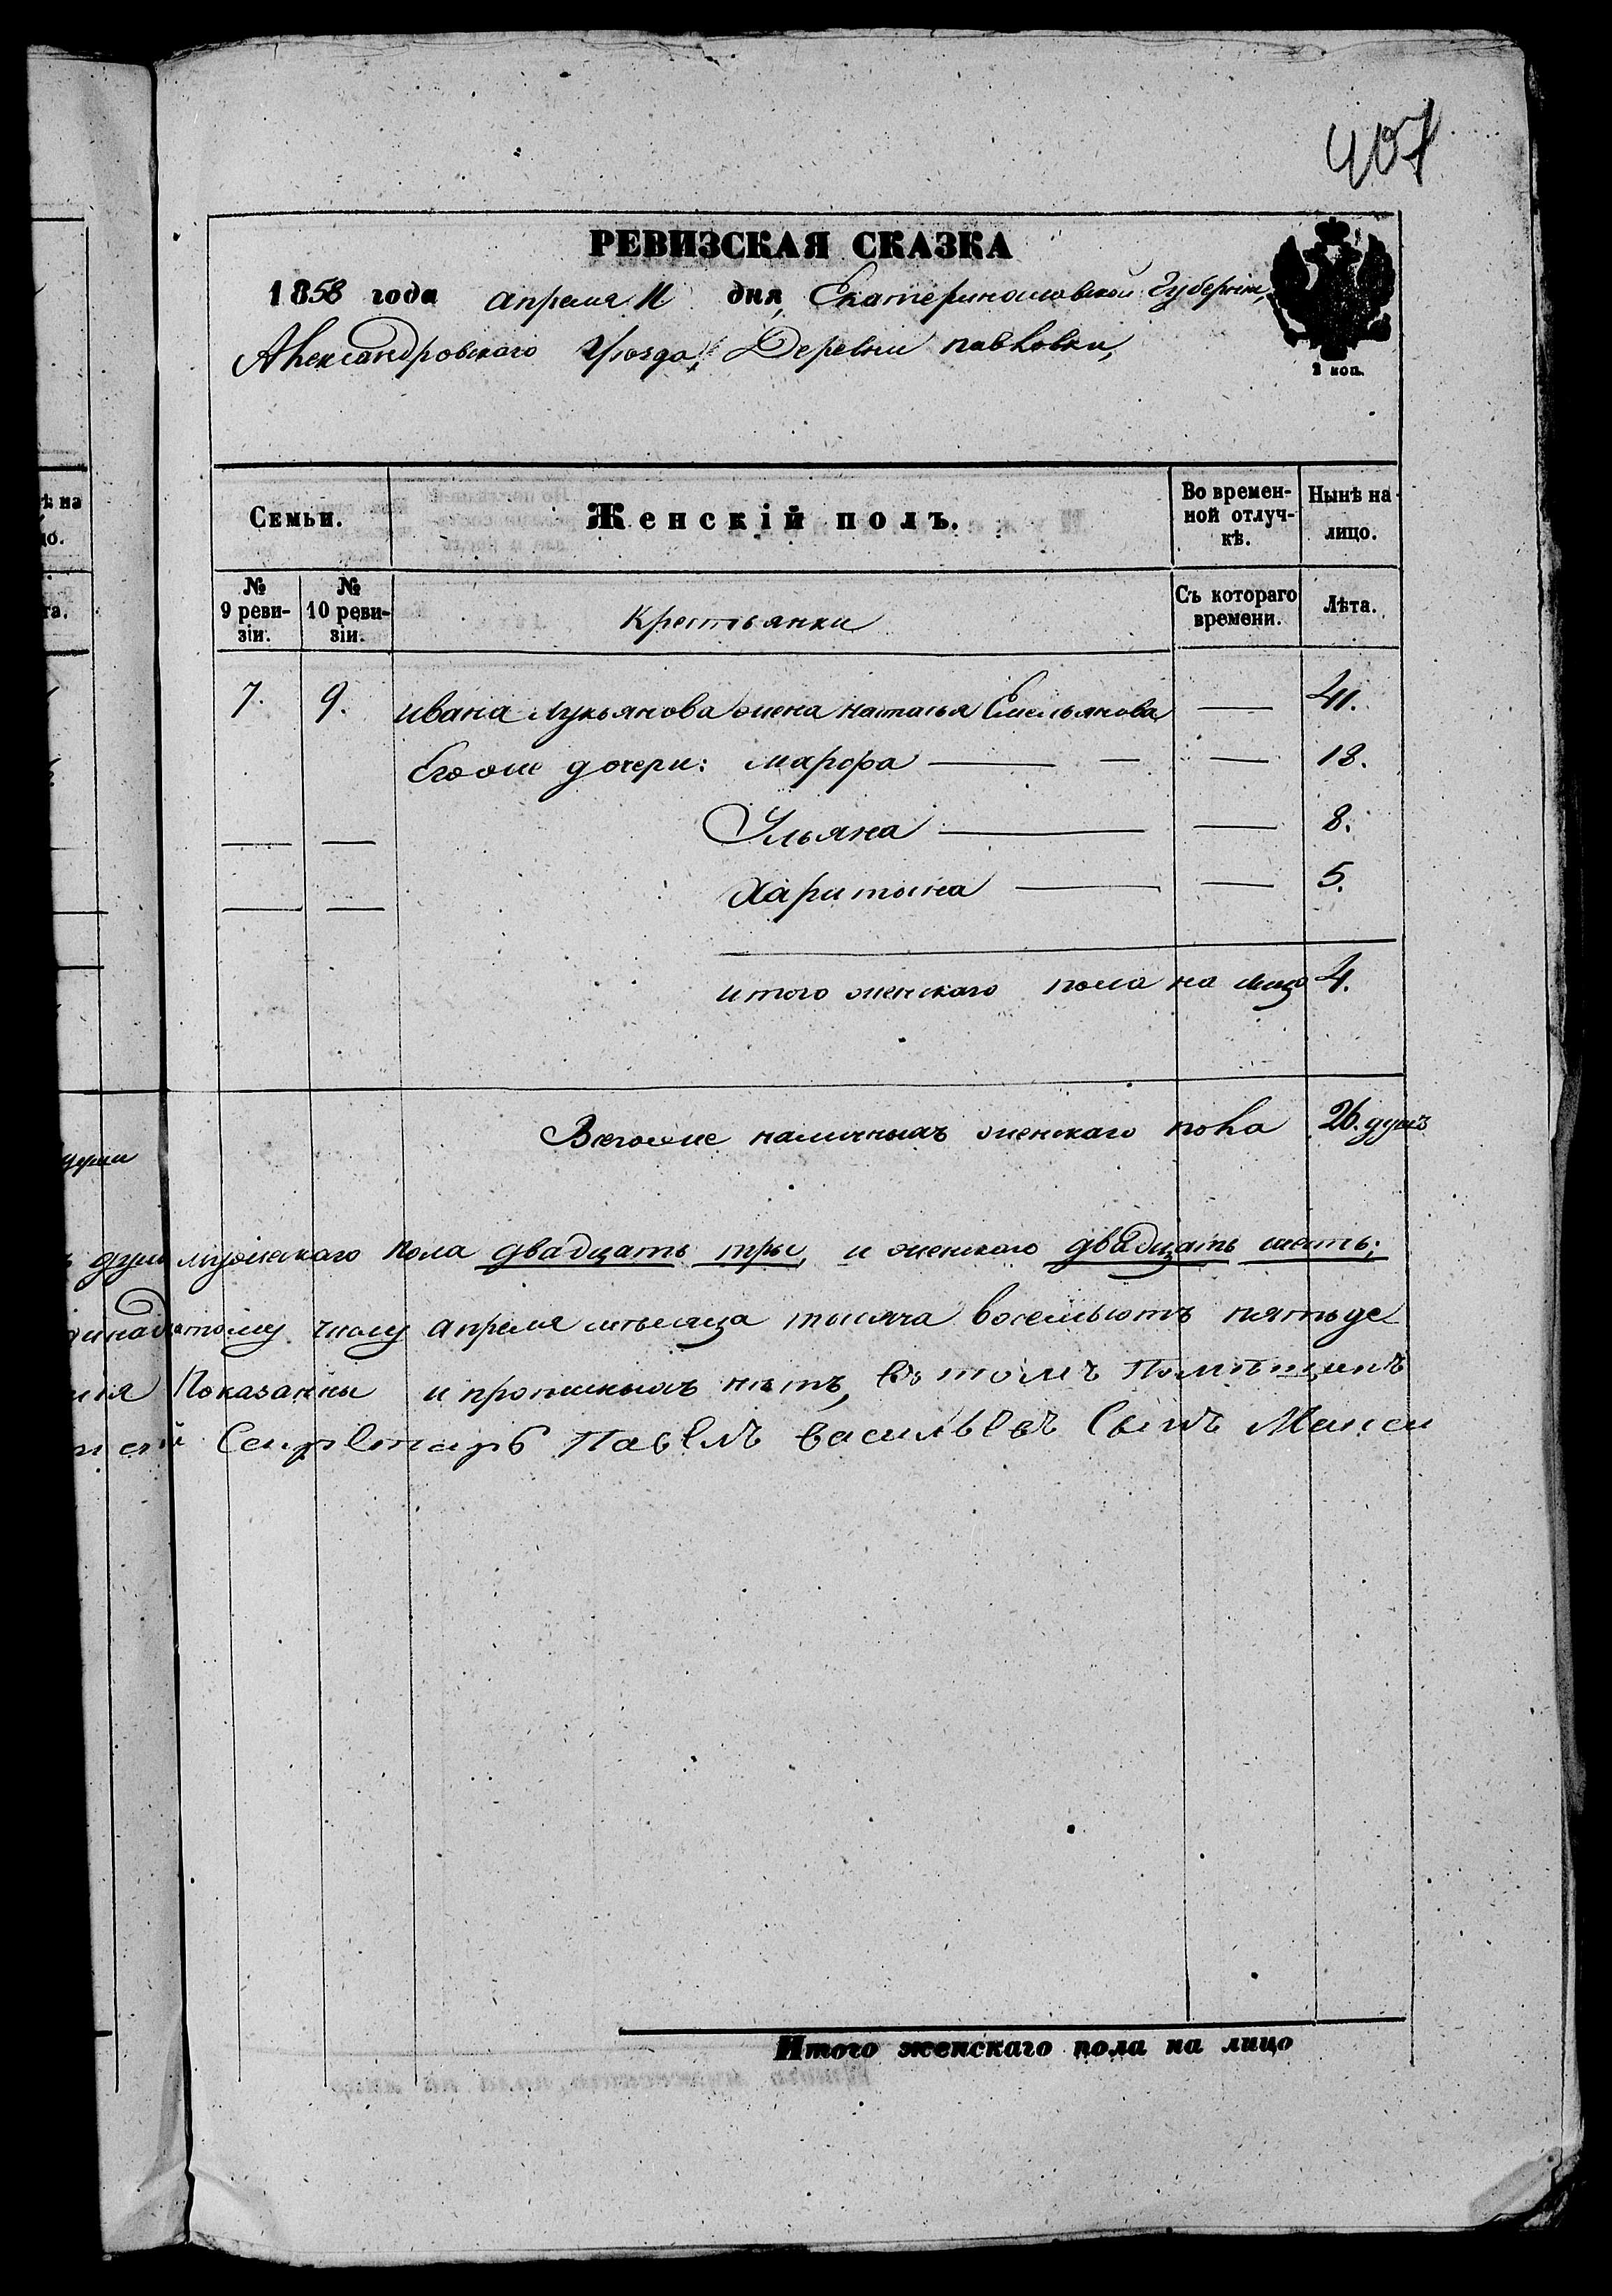 407
РЕВИЗСКАЯ СКАЗКА
1858 года апреля 11 дня, Екатеринославской Губерніи,
Александровскаго Уѣзда, Деревни павловки,
2 коп.
Семьи.
Женскій полъ.
Во времен-
ной отлуч-
кѣ.
Нынѣ на
лицо.
№
9 реви-
зіи.
№
10 реви-
зіи.
Крестьянки
Съ котораго
времени.
Лѣта.
7. 9. ивана лукьянова жена наталья Емельянова — 41.
Егоже дочери: марфа — — — 13.
— — Ульяна — — 8.
— — Харитына — — 5.
итого женскаго пола на лицо 4.
Всегоже наличныхъ женскаго пола 26. душъ
души
душъ мужескаго пола двадцать три, и женского двадцать шесть;
атому числу апреля мѣсяца тысяча восемьсотъ пятьде
Показанны и прописныхъ нѣтъ, въ томъ Помѣщикъ
Секретарь Павелъ васильевъ Сынъ
Итого женскаго пола на лицо